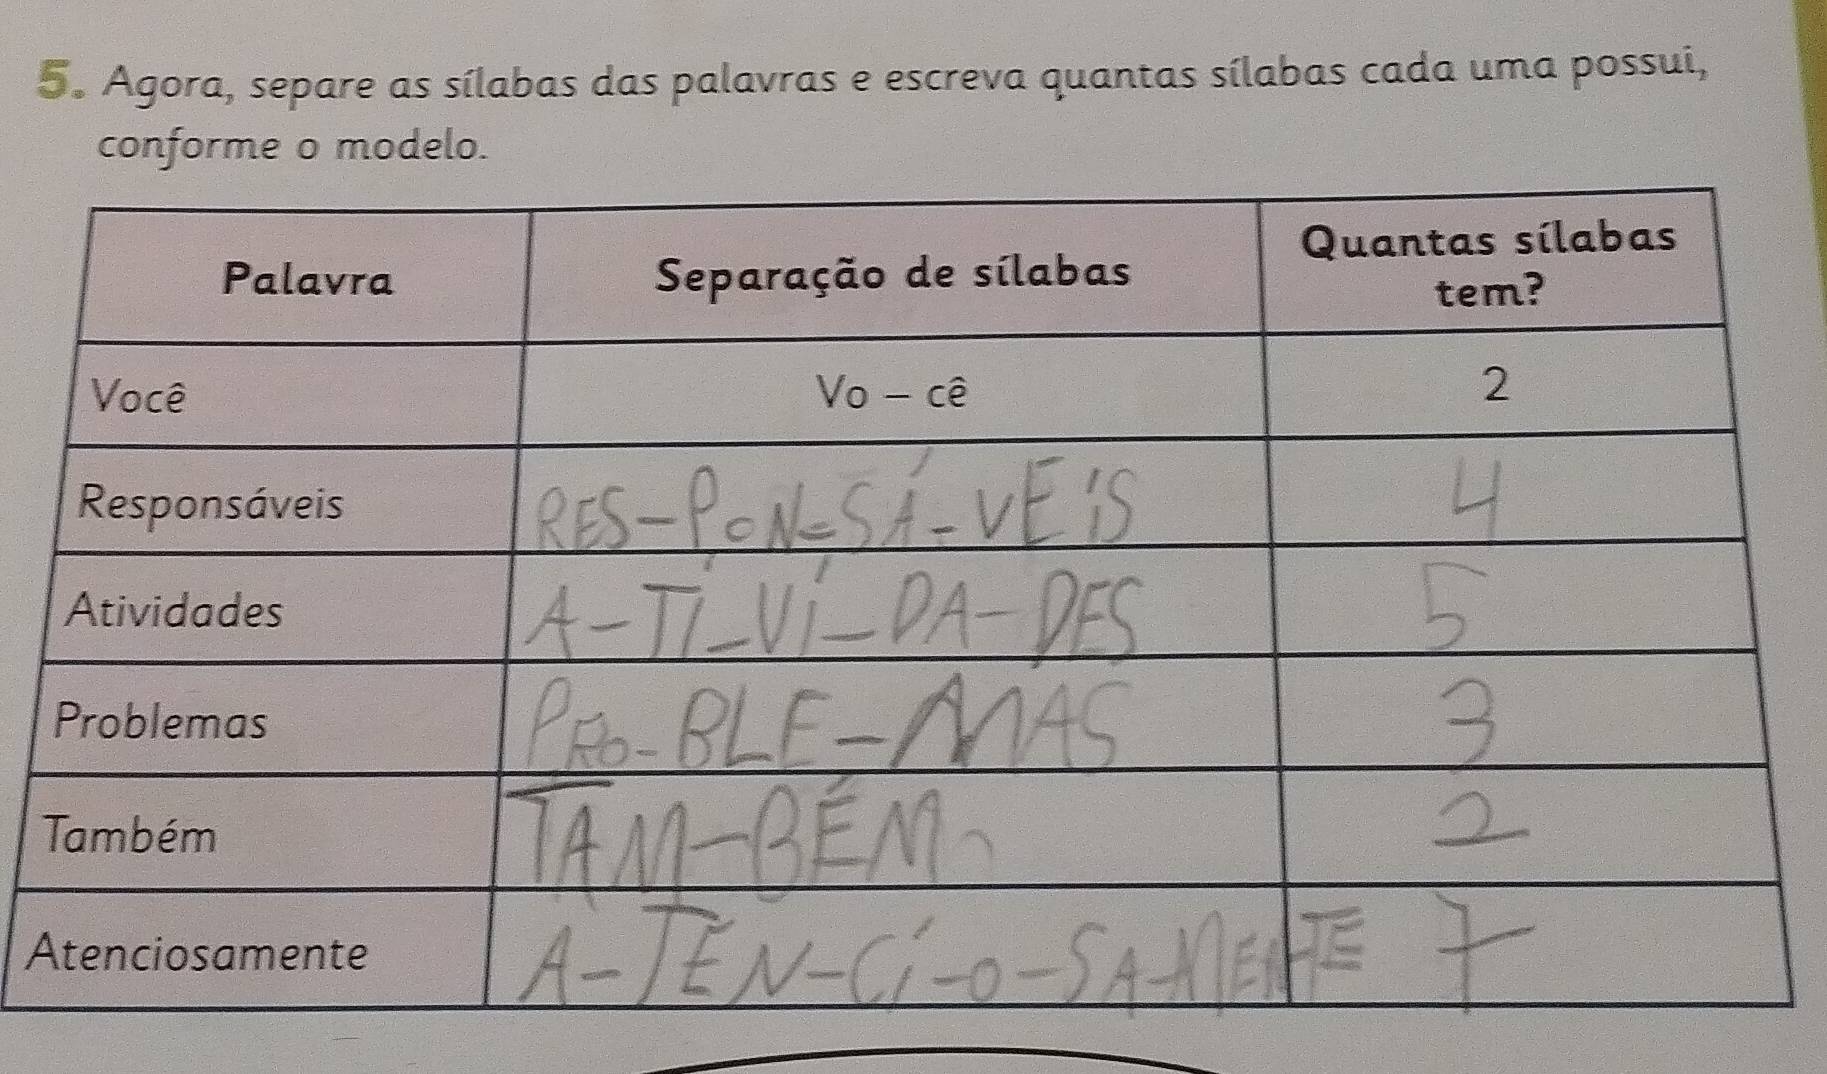 5. Agora, separe as sílabas das palavras e escreva quantas sílabas cada uma possui,
conforme o modelo.
Palavra Separação de sílabas Quantas sílabas
tem?
Você Vo – cê 2
Responsáveis RES-PON-SÁ-VEIS 4
Atividades A-TI-VI-DA-DES 5
Problemas PRO-BLE-MAS 3
Também TAM-BÉM 2
Atenciosamente A-TEN-CI-O-SA-MENTE 7